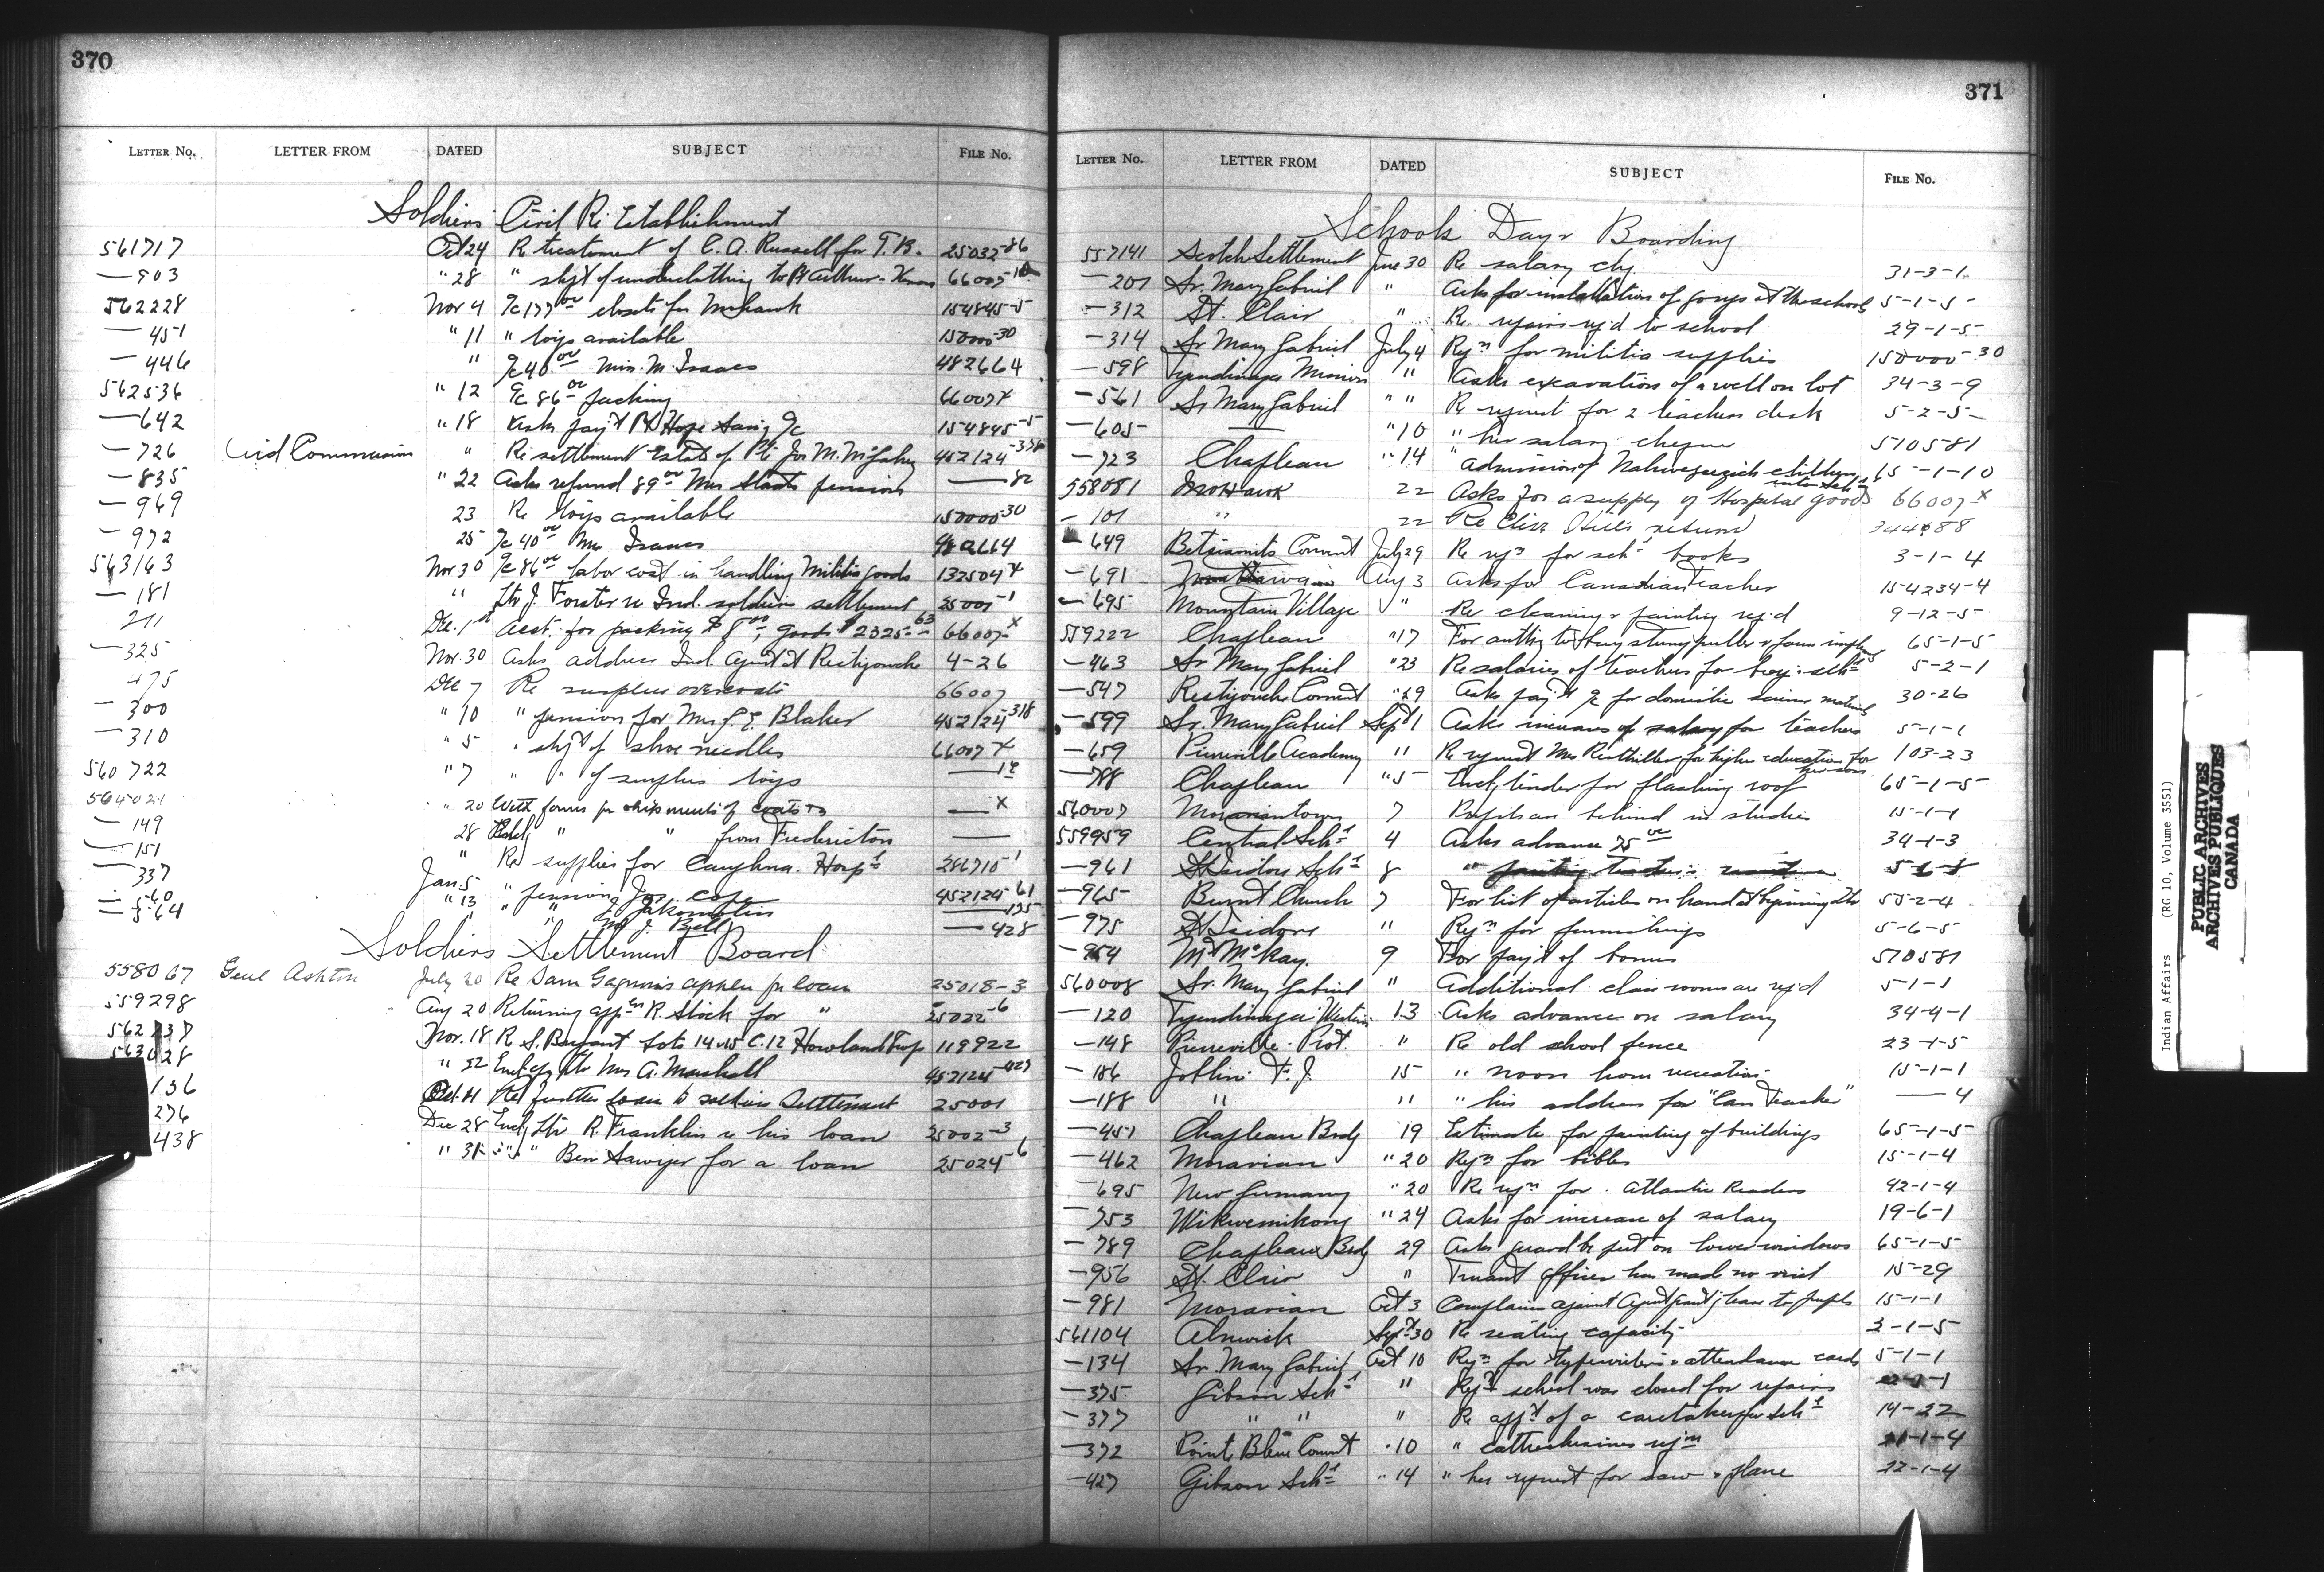 370
LETTER No. LETTER FROM DATED SUBJECT FILE No.
Soldiers Civil Re Establishment
561717 Oct 24 Re treatment of C. A. Russell for T. B. 25032-86
— 903 " 28 " shipt of underclothing to Pt Arthur - 66007
562228 Nov 4 closets for Mohawk 154845-5
— 451 " 11 " toys available 150000-30
— 446 " a/c 40 00 Mrs. M. Isaacs 482664
562536 " 12 a/c 86 00 packing 66007 X
— 642 " 18 Asks pay't Pt Hope San'y a/c 154845-5
— 726 Civil Commission " Re settlement Estate of Pte Jos M. 452124
— 835 " 22 Asks refund 89 00 Mrs Staats pension — 82
— 969 23 Re toys available 150000-30
— 972 25 a/c 40 00 Mrs Isaacs 482664
563163 Nov 30 a/c 86 00 labor cost in handling Militia goods 132504 X
— 181 " Ltr J. Forster re Ind. soldiers settlement 25001-1
211 Dec. 1st Acct. for packing $8 00, goods $2325 63 66007 X
— 325 Nov. 30 Asks address Ind. Agent at Restigouche 4-26
475 Dec 7 Re surplus overcoats 66007
— 300 " 10 " pension for Mrs. Blaker 452124-318
— 310 " 5 " ship't of shoe needles 66007 X
560722 "7 " " of surplus toys —
564021 " 20 With forms for shipments of coats — X
— 149 28 " " from Fredericton —
— 151 " Re supplies for Caughna. Hosp'l 286710-1
— 337 Jan 5 " pension Jos. 452124-61
— 560 " 13 " " —
— 564 " " J. Bell — 428
Soldiers Settlement Board
558067 Genl Ashton July 20 Re Sam Gagnon's appln for loan 25018-3
559298 Aug 20 Returning app'n R. Stock for " 25022-6
Nov. 18 R. S. Bryant Lots 14 & 15 C. 12 Howland Twp 119922
563028 " 22 Encl cpy ltr Mrs A. Marshall 452124
136 Re further loan to soldiers Settlement 25001
276 Dec 28 Encl'g ltr R. Franklin re his loan 25002-3
438 " 31 " " " Ben Sawyer for a loan 25024-6
371
LETTER No. LETTER FROM DATED SUBJECT FILE No.
Schools Day & Boarding
557141 Scotch Settlement June 30 Re salary chq. 31-3-1
— 201 Sr. Mary Gabriel " Asks for installation of gongs at the schools 5-1-5
— 312 St. Clair " Re repairs req'd to school 29-1-5
— 314 Sr Mary Gabriel July 4 Req'n for militia supplies 150000-30
— 598 Tyendinaga Mission " Asks excavation of a well on lot 34-3-9
— 561 Sr Mary Gabriel " " Re request for 2 teachers desk 5-2-5
— 605 —— " 10 " her salary cheque 510581
— 723 Chapleau " 14 " admission of children into sch'l 65-1-10
558081 Mohawk 22 Asks for a supply of Hospital goods 66007-X
— 101 " 22 Re Eliza Hill's return
— 649 Betsiamits Convent July 29 Re req'n for sch'l books 3-1-4
— 691 Aug 3 Asks for Canadian Teacher 154234-4
— 695 Mountain Village " Re cleaning & painting req'd 9-12-5
559222 Chapleau " 17 For auth'y to buy stump puller & farm implements 65-1-5
— 463 Sr Mary Gabriel " 23 Re salaries of teachers for boys sch'l 5-2-1
— 547 Restigouche Convent " 29 Asks pay't a/c for domestic science materials 30-26
— 599 Sr. Mary Gabriel Sept 1 Asks increase of salary for teachers 5-1-1
— 659 Pierreville Academy " Re request Mrs for higher education for her son 103-23
— 788 Chapleau " 5 Encl'g tender for flashing roof 65-1-5
560007 Moraviantown 7 Pupils are behind in studies 15-1-1
559959 Central Sch'l 4 Asks advance 75 00 34-1-3
— 961 St Isidore Sch'l 8
— 965 Burnt Church 7 For list of articles on hand at beginning 55-2-4
— 975 St Isidore " Req'n for furnishings 5-6-5
— 954 McKay 9 For pay't of bonus 510581
560008 Sr. Mary Gabriel " Additional class rooms are req'd 5-1-1
— 120 Tyendinaga Western 13 Asks advance on salary 34-4-1
— 148 Pierreville Prot. " Re old school fence 23-1-5
— 186 Joblin F. J. 15 " noon hour recreation 15-1-1
— 188 " " " his address for "Can Teacher" — 4
— 451 Chapleau Brdg 19 Estimate for painting of buildings 65-1-5
— 462 Moravian " 20 Req'n for bibles 15-1-4
— 695 New Germany " 20 Re req'n for Atlantic Readers 92-1-4
— 753 Wikwemikong " 24 Asks for increase of salary 19-6-1
— 789 Chapleau Brdg 29 Asks guard be put on lower windows 65-1-5
— 956 St. Clair " Truant officer has made no visit 15-29
— 981 Moravian Oct 3 Complains against Agent grant'g leave to pupils 15-1-1
561104 Alnwick Sept 30 Re seating capacity 2-1-5
— 134 Sr. Mary Gabriel Oct 10 Req'n for typewriter & attendance cards 5-1-1
— 375 Gibson Sch'l " school was closed for repairs
— 377 " " " Re app't of a caretaker for Sch'l 14-22
— 372 Pointe Bleue Convent " 10 " req'n
— 427 Gibson Sch'l " 14 " her request for saw & plane 22-1-4
Indian Affairs (RG 10, Volume 3551)
PUBLIC ARCHIVES
ARCHIVES PUBLIQUES
CANADA